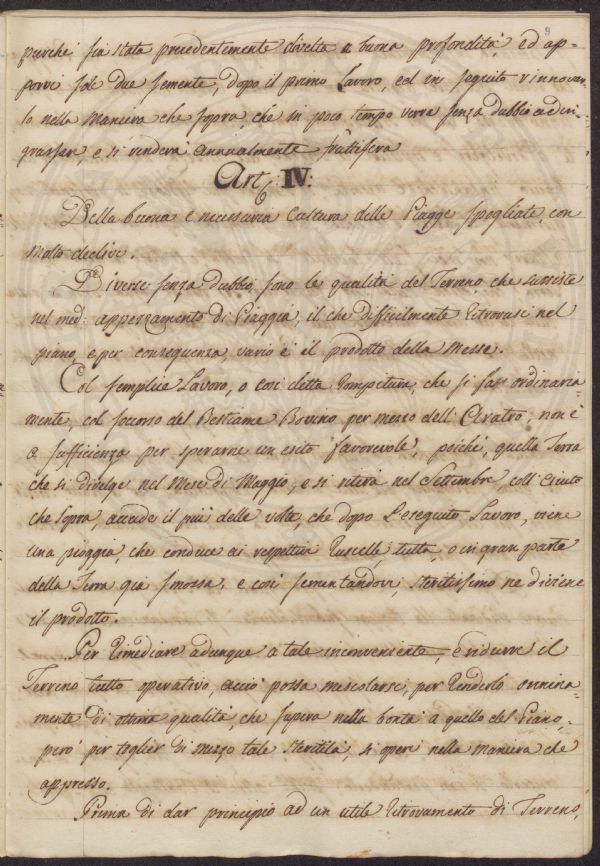 9
purché sia stata precedentemente divelta a buona profondità, ed ap-
porvi sole due semente, dopo il primo Lavoro, ed in seguito rinnovar-
lo nella Maniera che sopra, che in poco tempo verrà senza dubbio ad in-
grassare e si renderà annualmente fruttifera
Art. IV:
Della buona e necessaria Cultura delle Piagge spogliate, con
molto declive.
Diverse senza dubbio, sono le qualità del Terreno che sussiste
sul med: appezzamento di Piaggia, il che difficilmente ritrovasi nel
piano, e per conseguenza, vario è il prodotto della Messe.
Col semplice Lavoro, o così detta Rompitura, che si fass' ordinaria-
mente, col soccorso del Bestiame Bovino per mezzo dell'Aratro: non è
a sufficienza per sperarne un esito favorevole, poiché, quella Terra
che si divelge nel Mese di Maggio, e si ritira nel Settembre, coll'aiuto
che sopra, accade il più delle volte, che dopo l'eseguito Lavoro, viene
una pioggia, che conduce ai respettivi Ruscelli, tutta, o in gran parte
della Terra già smossa, e così sementandovi, sterilissimo ne diviene
il prodotto.
Per rimediare adunque a tale inconveniente, e ridurre il
Terreno tutto operativo, acciò possa mescolarsi, per renderlo onnina-
mente di ottima qualità, che supera nella bontà a quello del Piano,
però per toglier di mezzo tale sterilità, si operi nella maniera che
appresso.
Prima di dar principio ad un utile ritrovamento di Terreno,